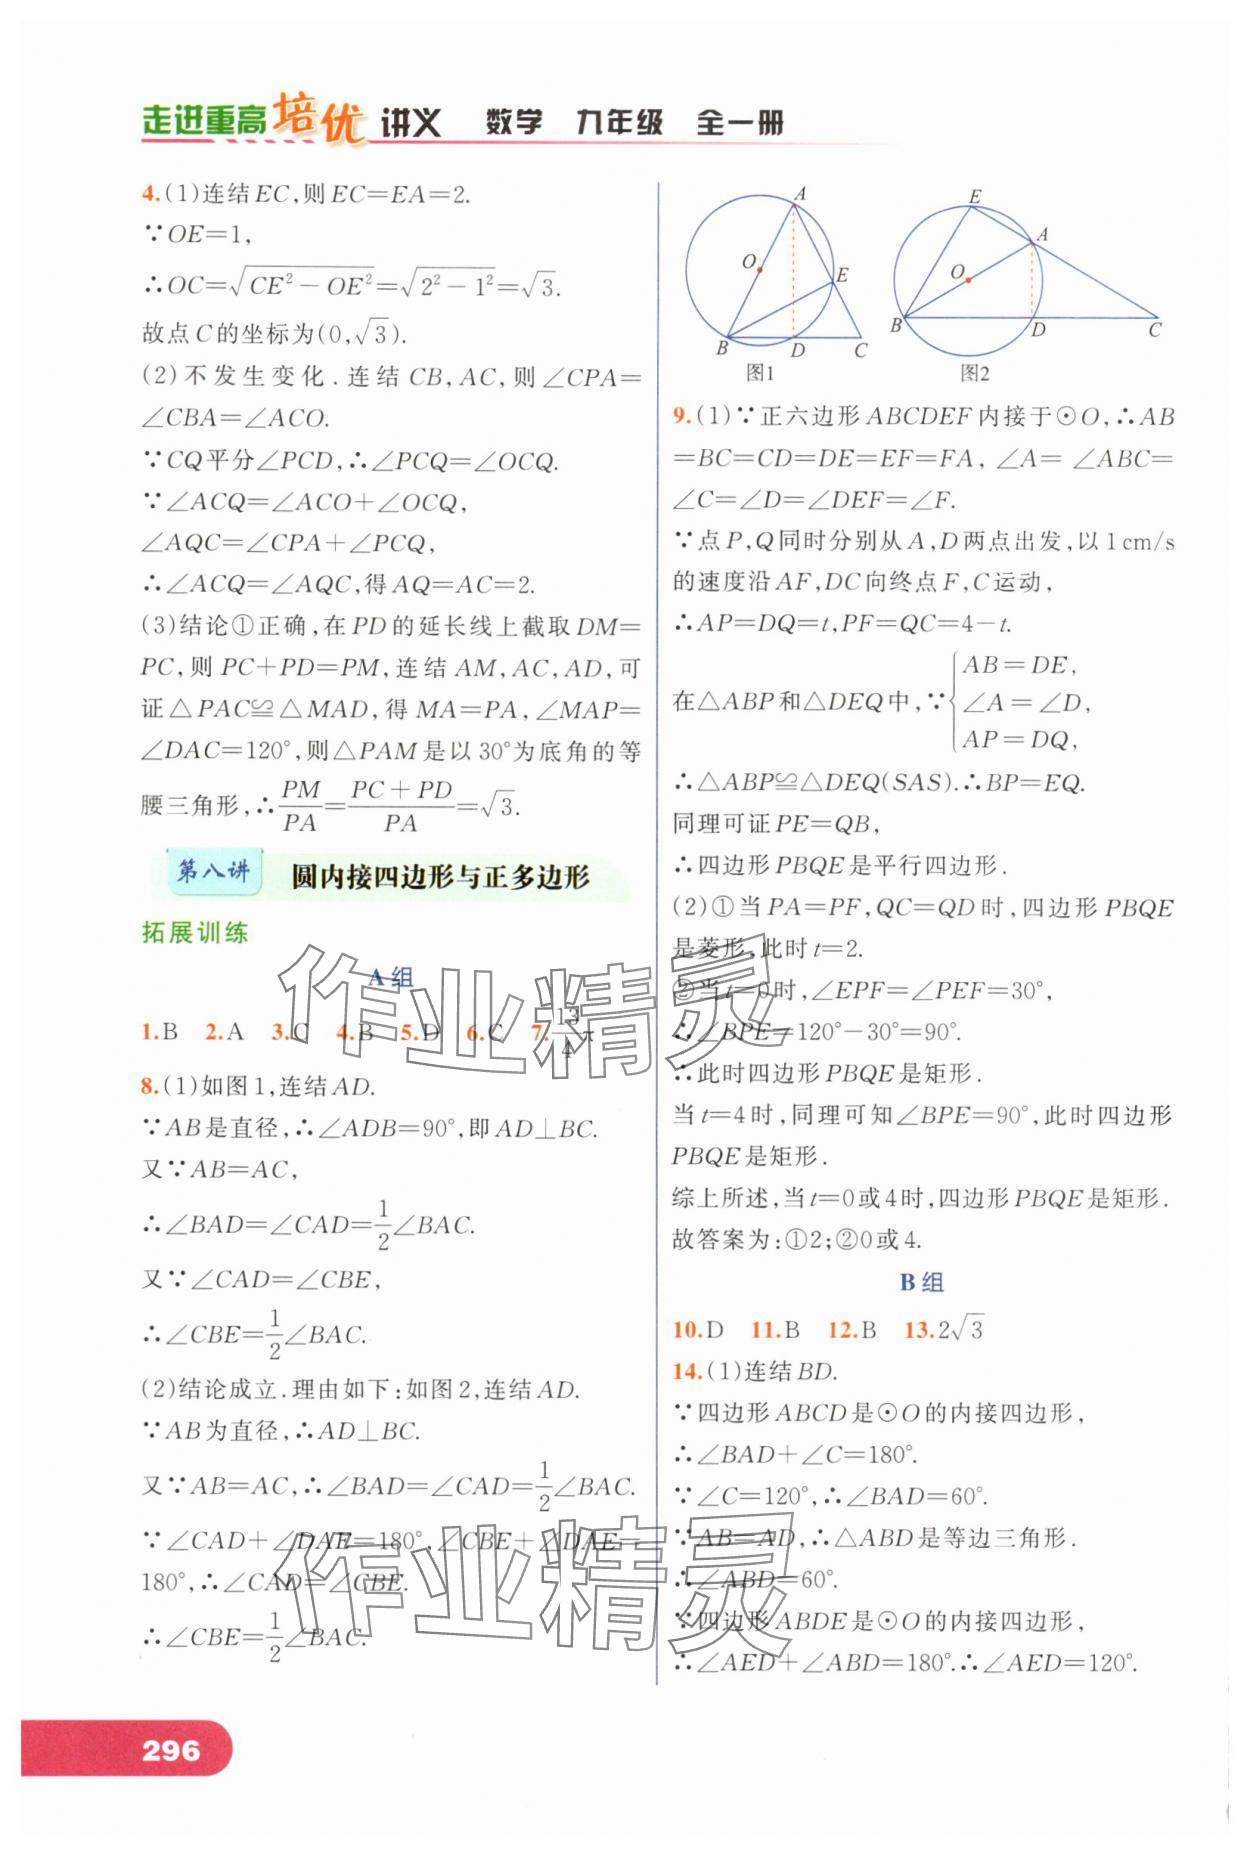 走进重高培优 讲义 数学 九年级 全一册
4.(1)连结EC,则EC=EA=2.
∵OE=1,
∴OC=√(CE²-OE²)=√(2²-1²)=√3.
故点C的坐标为(0,√3).
(2)不发生变化.连结CB,AC,则∠CPA=
∠CBA=∠ACO.
∵CQ平分∠PCD,∴∠PCQ=∠OCQ.
∵∠ACQ=∠ACO+∠OCQ,
∠AQC=∠CPA+∠PCQ,
∴∠ACQ=∠AQC,得AQ=AC=2.
(3)结论①正确,在PD的延长线上截取DM=
PC,则PC+PD=PM,连结AM,AC,AD,可
证△PAC≌△MAD,得MA=PA,∠MAP=
∠DAC=120°,则△PAM是以30°为底角的等
腰三角形,∴PM/PA=(PC+PD)/PA=√3.
第八讲 圆内接四边形与正多边形
拓展训练
A组
1.B 2.A 3.C 4.B 5.D 6.C 7.13/4π
8.(1)如图1,连结AD.
∵AB是直径,∴∠ADB=90°,即AD⊥BC.
又∵AB=AC,
∴∠BAD=∠CAD=1/2∠BAC.
又∵∠CAD=∠CBE,
∴∠CBE=1/2∠BAC.
(2)结论成立.理由如下:如图2,连结AD.
∵AB为直径,∴AD⊥BC.
又∵AB=AC,∴∠BAD=∠CAD=1/2∠BAC.
∵∠CAD+∠DAE=180°,∠CBE+∠DAE=
180°,∴∠CAD=∠CBE.
∴∠CBE=1/2∠BAC.
A
O
E
B
D
C
图1
E
A
O
B
D
C
图2
9.(1)∵正六边形ABCDEF内接于⊙O,∴AB
=BC=CD=DE=EF=FA,∠A=∠ABC=
∠C=∠D=∠DEF=∠F.
∵点P,Q同时分别从A,D两点出发,以1cm/s
的速度沿AF,DC向终点F,C运动,
∴AP=DQ=t,PF=QC=4-t.
在△ABP和△DEQ中,∵{AB=DE,
∠A=∠D,
AP=DQ,
∴△ABP≌△DEQ(SAS).∴BP=EQ.
同理可证PE=QB,
∴四边形PBQE是平行四边形.
(2)①当PA=PF,QC=QD时,四边形PBQE
是菱形,此时t=2.
②当t=0时,∠EPF=∠PEF=30°,
∴∠BPE=120°-30°=90°.
∴此时四边形PBQE是矩形.
当t=4时,同理可知∠BPE=90°,此时四边形
PBQE是矩形.
综上所述,当t=0或4时,四边形PBQE是矩形.
故答案为:①2;②0或4.
B组
10.D 11.B 12.B 13.2√3
14.(1)连结BD.
∵四边形ABCD是⊙O的内接四边形,
∴∠BAD+∠C=180°.
∵∠C=120°,∴∠BAD=60°.
∵AB=AD,∴△ABD是等边三角形.
∴∠ABD=60°.
∵四边形ABDE是⊙O的内接四边形,
∴∠AED+∠ABD=180°.∴∠AED=120°.
作业精灵
作业精灵
296